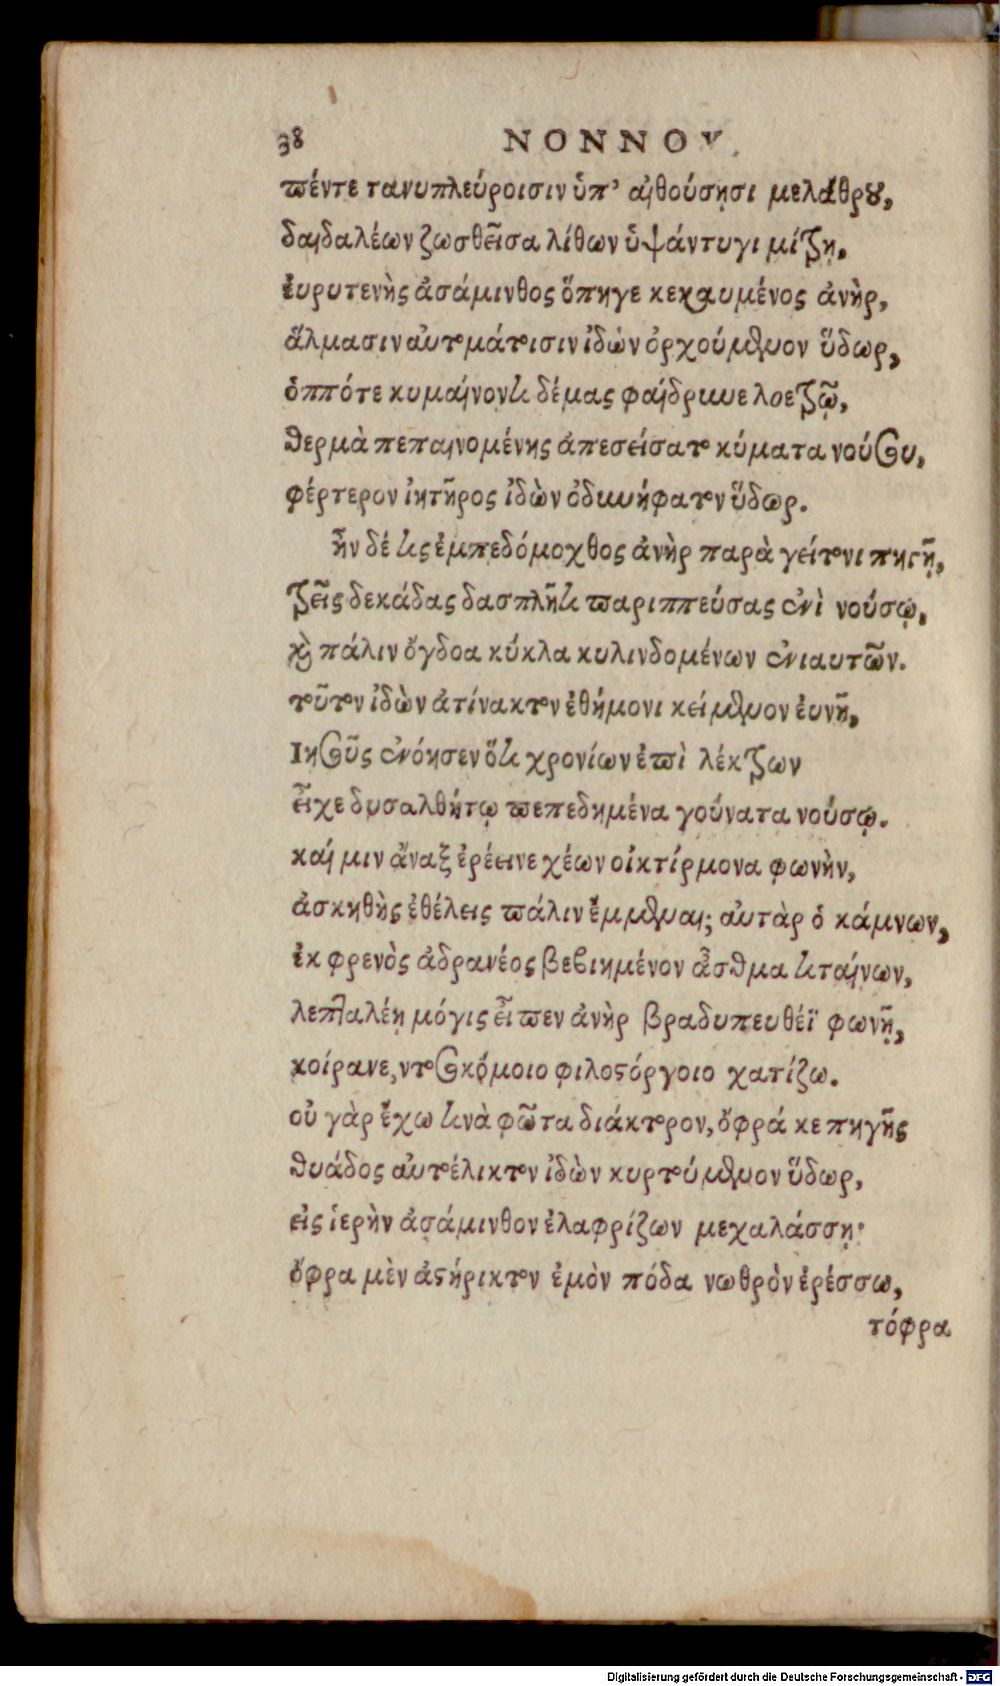 38 ΝΟΝΝΟΥ.
πέντε τανυπλεύροισιν ὑπ' αἰθούσῃσι μελάθρου,
δαιδαλέων ζωσθεῖσα λίθων ὑψάντυγι μίτρῃ,
εὐρυτενὴς ἀσάμινθος ὅπηγε κεχαυμένος ἀνὴρ,
ἅλμασιν αὐτομάτοισιν ἰδὼν ὀρχούμενον ὕδωρ,
ὁππότε κυμαίνοντι δέμας φαίδρυνε λοετρῷ,
θερμὰ πεπαινομένης ἀπεσείσατο κύματα νούσου,
φέρτερον ἰητῆρος ἰδὼν ὀδυνήφατον ὕδωρ.
ἦν δέ τις ἐμπεδόμοχθος ἀνὴρ παρὰ γείτονι πηγῇ,
τρεῖς δεκάδας δασπλῆτι παριππεύσας ἐνὶ νούσῳ,
καὶ πάλιν ὄγδοα κύκλα κυλινδομένων ἐνιαυτῶν.
τοῦτον ἰδὼν ἀτίνακτον ἐθήμονι κείμενον εὐνῇ,
Ιησοῦς ἐνόησεν ὅτι χρονίων ἐπὶ λέκτρων
εἶχε δυσαλθήτῳ πεπεδημένα γούνατα νούσῳ.
καί μιν ἄναξ ἐρέεινε χέων οἰκτίρμονα φωνὴν,
ἀσκηθὴς ἐθέλεις πάλιν ἔμμεναι; αὐτὰρ ὁ κάμνων,
ἐκ φρενὸς ἀδρανέος βεβιημένον ἆσθμα τιταίνων,
λεπταλέῃ μόγις εἶπεν ἀνὴρ βραδυπευθέϊ φωνῇ,
κοίρανε, νοσοκόμοιο φιλοστόργοιο χατίζω.
οὐ γὰρ ἔχω τινὰ φῶτα διάκτορον, ὄφρά κε πηγῆς
θυάδος αὐτοέλικτον ἰδὼν κυρτούμενον ὕδωρ,
εἰς ἱερὴν ἀσάμινθον ἐλαφρίζων με χαλάσσῃ·
ὄφρα μὲν ἀστήρικτον ἐμὸν πόδα νωθρὸν ἐρέσσω,
τόφρα
Digitalisierung gefördert durch die Deutsche Forschungsgemeinschaft - DFG